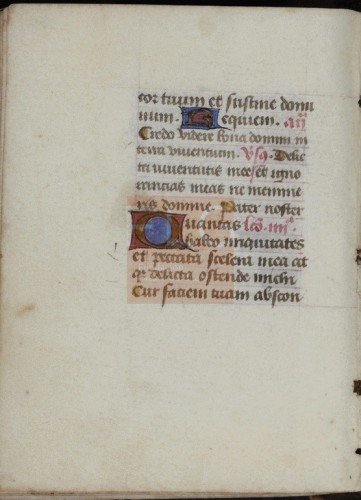 cor tuum et sustine domi
num. Requiem. añ
Credo videre bona domini in
terra viventium. vsꝰ. Delic
ta iuventutis mee et igno
rancias meas ne memine
ris domine. Pater noster
Quantas lcō. iiiiᵃ.
habeo iniquitates
et peccata scelera mea at
qꝫ delicta ostende michi
Cur faciem tuam abscon